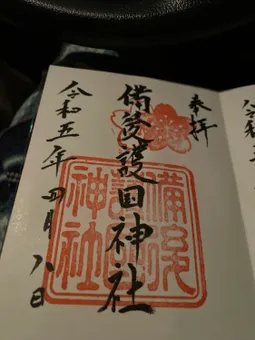 奉拝
備後護国神社
令和五年四月八日
備後
護國
神社
令和